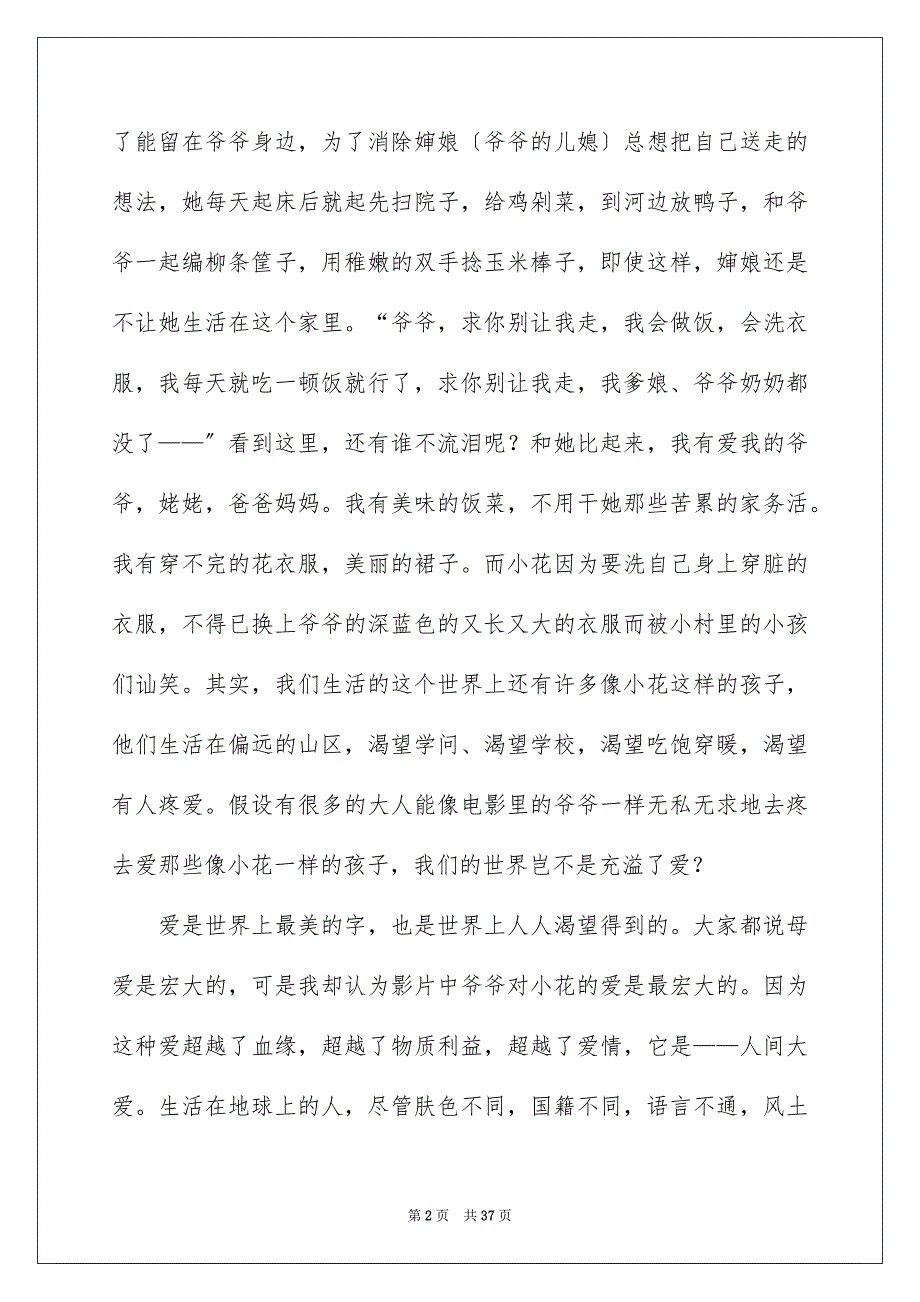 了能留在爷爷身边，为了消除婶娘〔爷爷的儿媳〕总想把自己送走的
想法，她每天起床后就起先扫院子，给鸡剁菜，到河边放鸭子，和爷
爷一起编柳条筐子，用稚嫩的双手捻玉米棒子，即使这样，婶娘还是
不让她生活在这个家里。“爷爷，求你别让我走，我会做饭，会洗衣
服，我每天就吃一顿饭就行了，求你别让我走，我爹娘、爷爷奶奶都
没了——〞看到这里，还有谁不流泪呢？和她比起来，我有爱我的爷
爷，姥姥，爸爸妈妈。我有美味的饭菜，不用干她那些苦累的家务活。
我有穿不完的花衣服，美丽的裙子。而小花因为要洗自己身上穿脏的
衣服，不得已换上爷爷的深蓝色的又长又大的衣服而被小村里的小孩
们讪笑。其实，我们生活的这个世界上还有许多像小花这样的孩子，
他们生活在偏远的山区，渴望学问、渴望学校，渴望吃饱穿暖，渴望
有人疼爱。假设有很多的大人能像电影里的爷爷一样无私无求地去疼
去爱那些像小花一样的孩子，我们的世界岂不是充溢了爱？
爱是世界上最美的字，也是世界上人人渴望得到的。大家都说母
爱是宏大的，可是我却认为影片中爷爷对小花的爱是最宏大的。因为
这种爱超越了血缘，超越了物质利益，超越了爱情，它是——人间大
爱。生活在地球上的人，尽管肤色不同，国籍不同，语言不通，风土
第 2 页 共 37 页